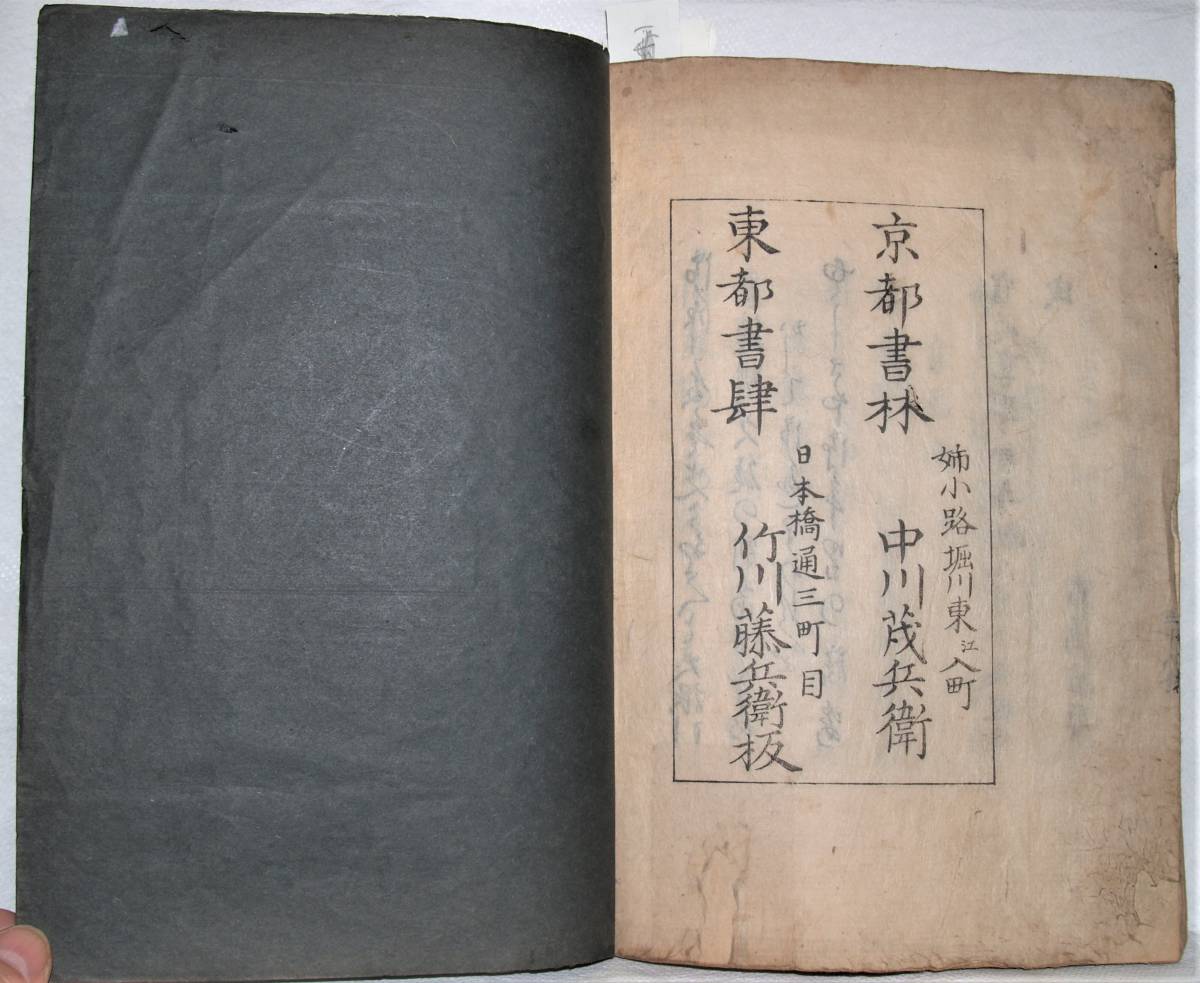 京都書林
姉小路堀川東江入町
中川茂兵衛
東都書肆
日本橋通三町目
竹川藤兵衛板